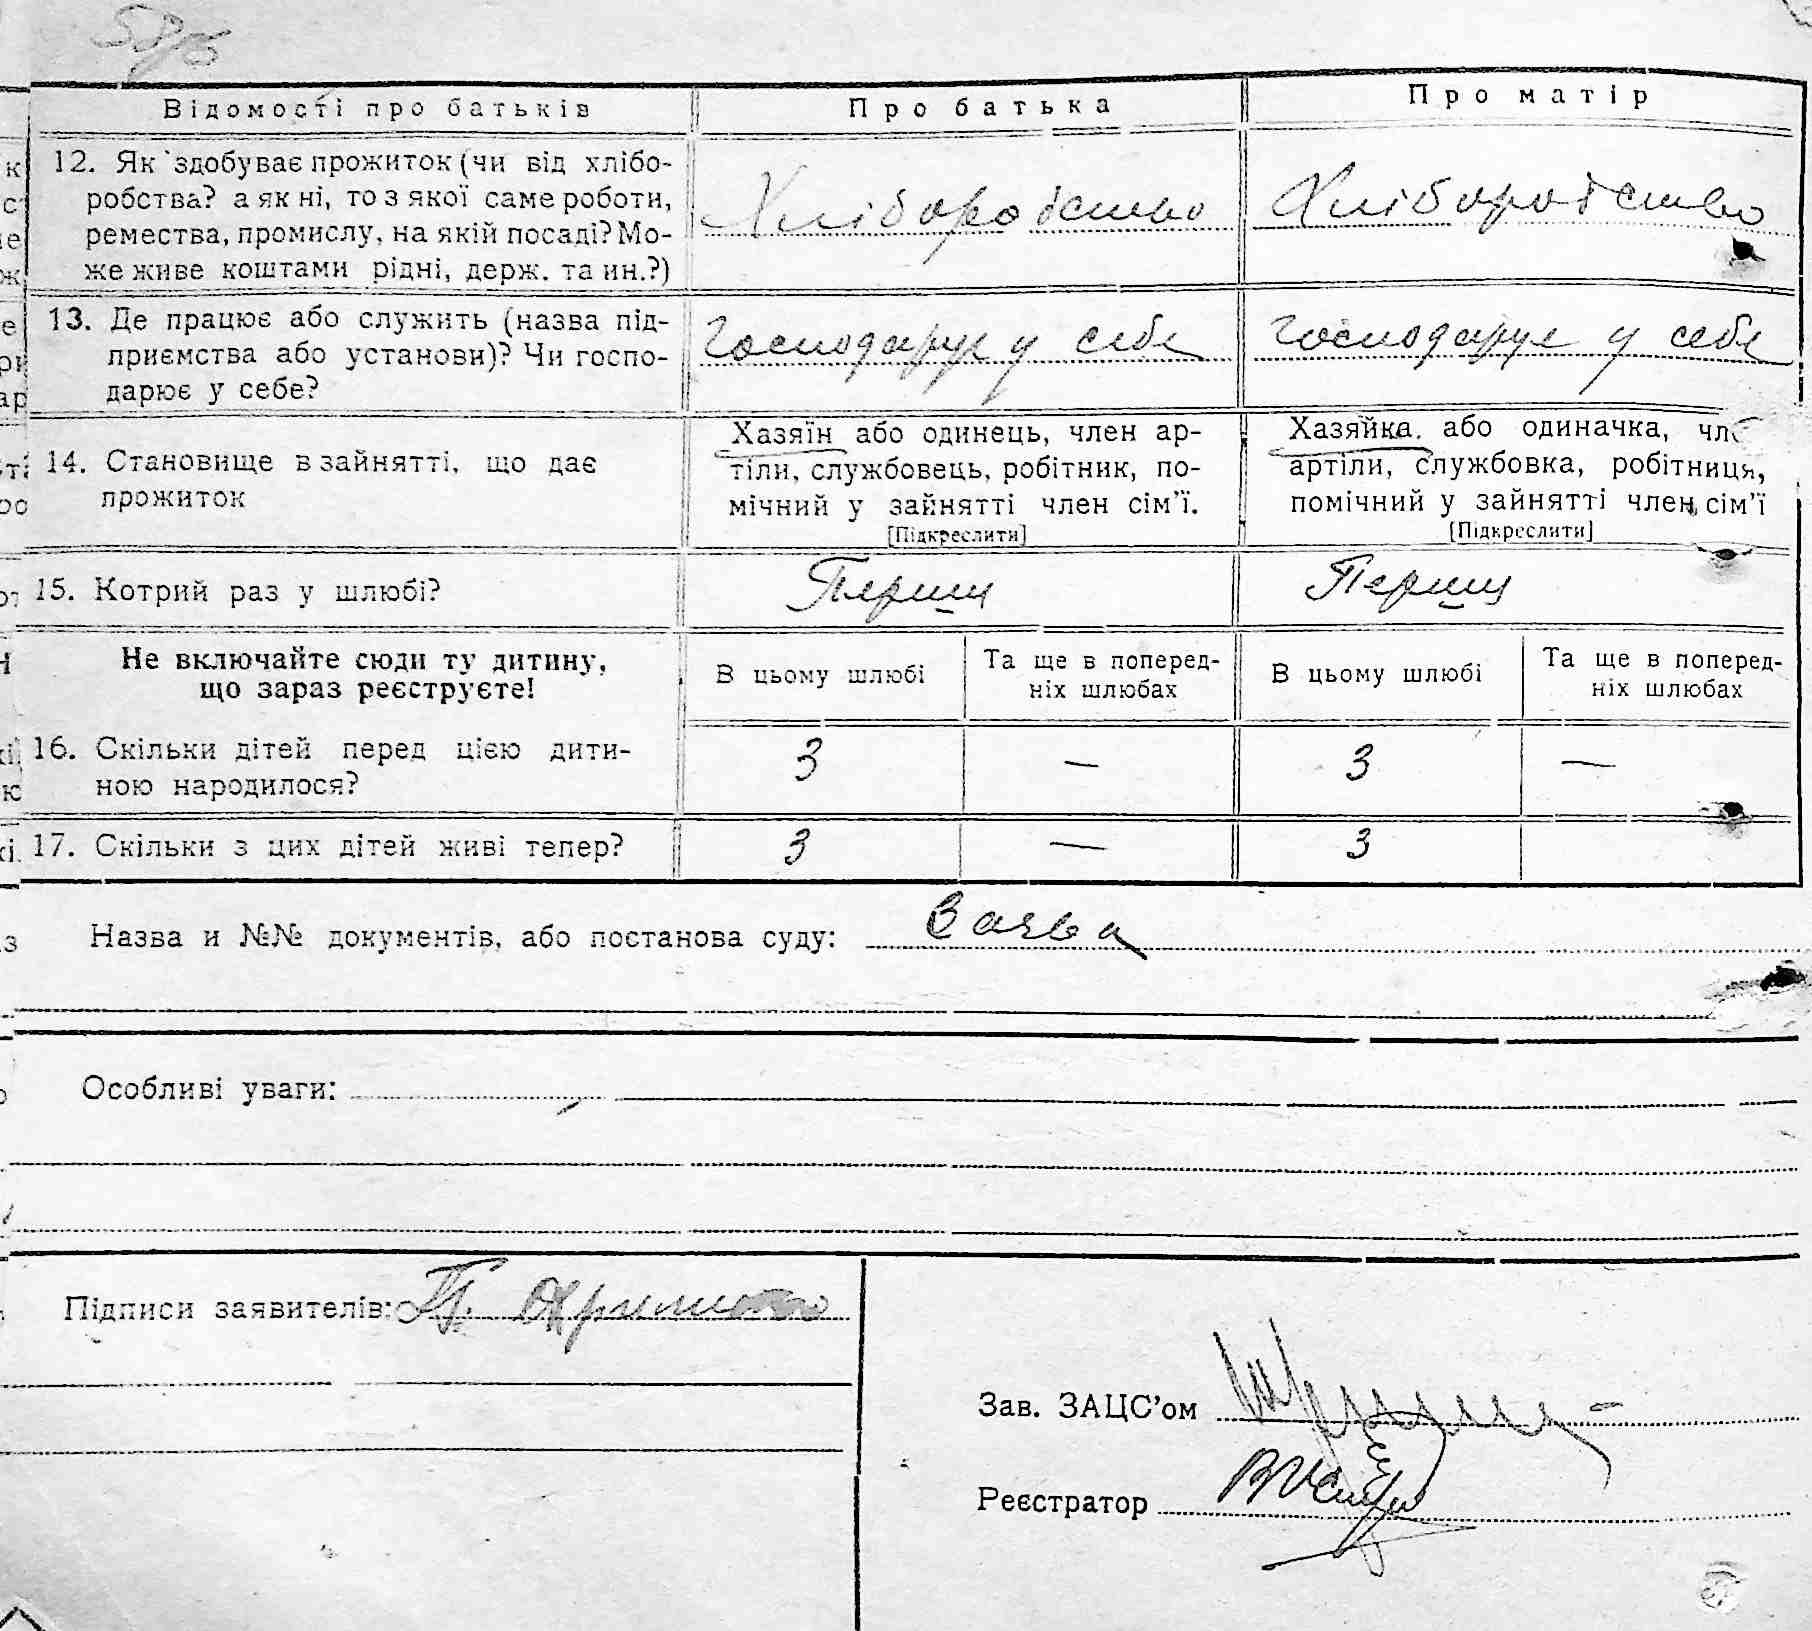 Відомості про батьків Про батька Про матір
12. Як здобуває прожиток (чи від хлібо-
робства? а як ні, то з якої саме роботи,
ремества, промислу, на якій посаді? Мо-
же живе коштами рідні, держ. та ин.?)
Хліборобство Хліборобство
13. Де працює або служить (назва під-
приємства або установи)? Чи госпо-
дарює у себе?
Господарує у себе Господарує у себе
14. Становище в зайнятті, що дає
прожиток
Хазяїн або одинець, член ар-
тіли, службовець, робітник, по-
мічний у зайнятті член сім'ї.
[Підкреслити]
Хазяйка. або одиначка,
артіли, службовка, робітниця,
помічний у зайнятті член сім'ї
[Підкреслити]
15. Котрий раз у шлюбі? Перший Перший
Не включайте сюди ту дитину,
що зараз реєструєте!
В цьому шлюбі
Та ще в поперед-
ніх шлюбах
В цьому шлюбі
Та ще в поперед-
ніх шлюбах
16. Скільки дітей перед цією дити-
ною народилося?
3 — 3 —
17. Скільки з цих дітей живі тепер? 3 — 3
Назва и №№ документів, або постанова суду: Заява
Особливі уваги:
Підписи заявителів:
Зав. ЗАЦС'ом
Реєстратор